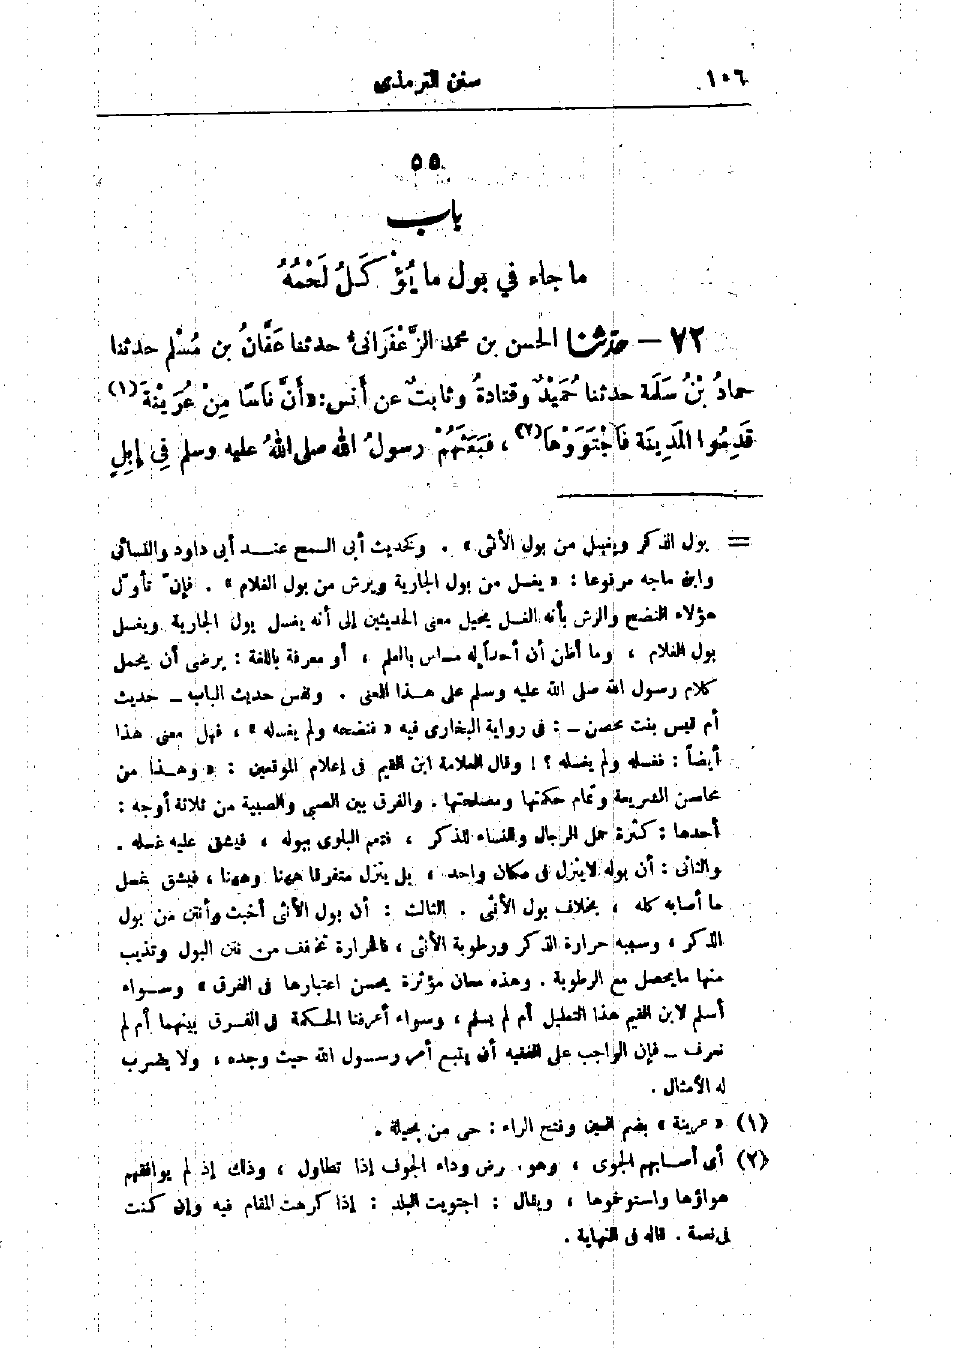 ١٠٦ سنن الترمذى
٥٥
باب
ما جاء في بول ما يُؤْكَلُ لَحْمُهُ
٧٢ — حدّثنا الحسن بن محمد الزَّعْفَرَانىُّ حدثنا عَفَّانُ بن مُسْلم حدثنا
حمادُ بْنُ سَلَمَة حدثنا حُمَيْدٌ وقتادةُ وثابتٌ عن أَنَسٍ: «أَنَّ نَاسًا مِنْ عُرَيْنَةَ (١)
قَدِمُوا المَدِينَة فَاجْتَوَوْهَا (٢) ، فَبَعَثَهُمْ رسولُ الله صلى اللهُ عليه وسلم فِى إِبِلِ
= بول الذكر ويغسل من بول الأنثى » . وكحديث أبى السمح عنـــد أبى داود والنسائى
وابن ماجه مرفوعا : « يغسل من بول الجارية ويرش من بول الغلام » . فإنّ تأوّل
هؤلاء النضح والرش بأنه الغسل يحيل معنى الحديثين إلى أنه يغسل بول الجارية ويغسل
بول الغلام ، وما أظن أن أحداً له مساس بالعلم ، أو معرفة باللغة : يرضى أن يحمل
كلام رسول الله صلى الله عليه وسلم على هـذا المعنى . ونفس حديث الباب — حديث
أم قيس بنت محصن — : فى رواية البخارى فيه « فنضحه ولم يغسله » ، فهل معنى هذا
أيضاً : فغسله ولم يغسله ؟ ! وقال العلامة ابن القيم فى إعلام الموقعين : « وهـذا من
محاسن الشريعة وتمام حكمتها ومصلحتها . والفرق بين الصبى والصبية من ثلاثة أوجه :
أحدها : كثرة حمل الرجال والنساء للذكر ، فتعم البلوى ببوله ، فيشق عليه غسله .
والثانى : أن بوله لاينزل فى مكان واحد ، بل ينزل متفرقا ههنا وههنا ، فيشق غسل
ما أصابه كله ، بخلاف بول الأنثى . الثالث : أن بول الأنثى أخبث وأنتن من بول
الذكر ، وسببه حرارة الذكر ورطوبة الأنثى ، فالحرارة تخفف من نتن البول وتذيب
منها مايحصل مع الرطوبة . وهذه معان مؤثرة يحسن اعتبارها فى الفرق » وســواء
أسلم لابن القيم هذا التعليل أم لم يسلم ، وسواء أعرفنا الحـكمة فى الفـرق بينهما أم لم
نعرف — فإن الواجب على الفقيه أن يتبع أمر رســول الله حيث وجده ، ولا يضرب
له الأمثال .
(١) « عرينة » بضم العين وفتح الراء : حى من بجيلة .
(٢) أى أصـابهم الجوى ، وهو رض وداء الجوف إذا تطاول ، وذلك إذ لم يوافقهم
هواؤها واستوخموها ، ويقال : اجتويت البلد : إذا كرهت المقام فيه وإن كنت
فى نعمة . قاله فى النهاية .